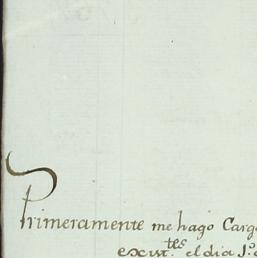 Primeramente me hago Carg
exist.tes el dia 1.o d